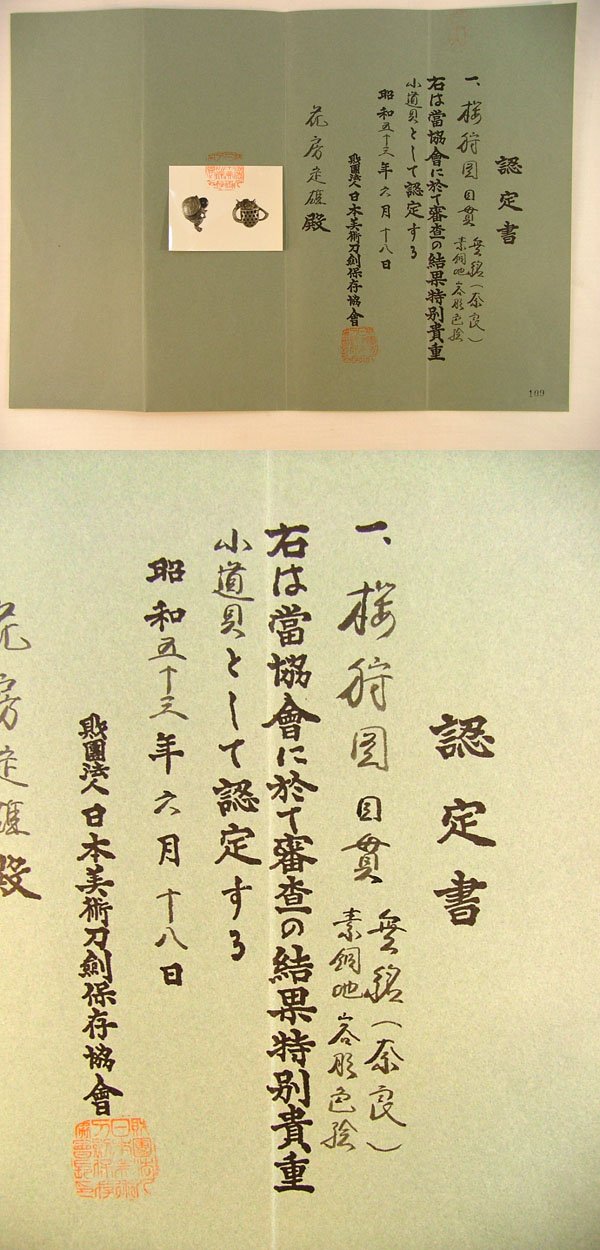 認定書
一、桜狩図目貫 無銘(奈良)
素銅地容彫色絵
右は當協會に於て審査の結果特別貴重
小道具として認定する
昭和五十三年六月十八日
財團法人日本美術刀劍保存協會
花房定 殿
109
認定書
一、桜狩図目貫 無銘(奈良)
素銅地容彫色絵
右は當協會に於て審査の結果特別貴重
小道具として認定する
昭和五十三年六月十八日
財團法人日本美術刀劍保存協會
花房定 殿